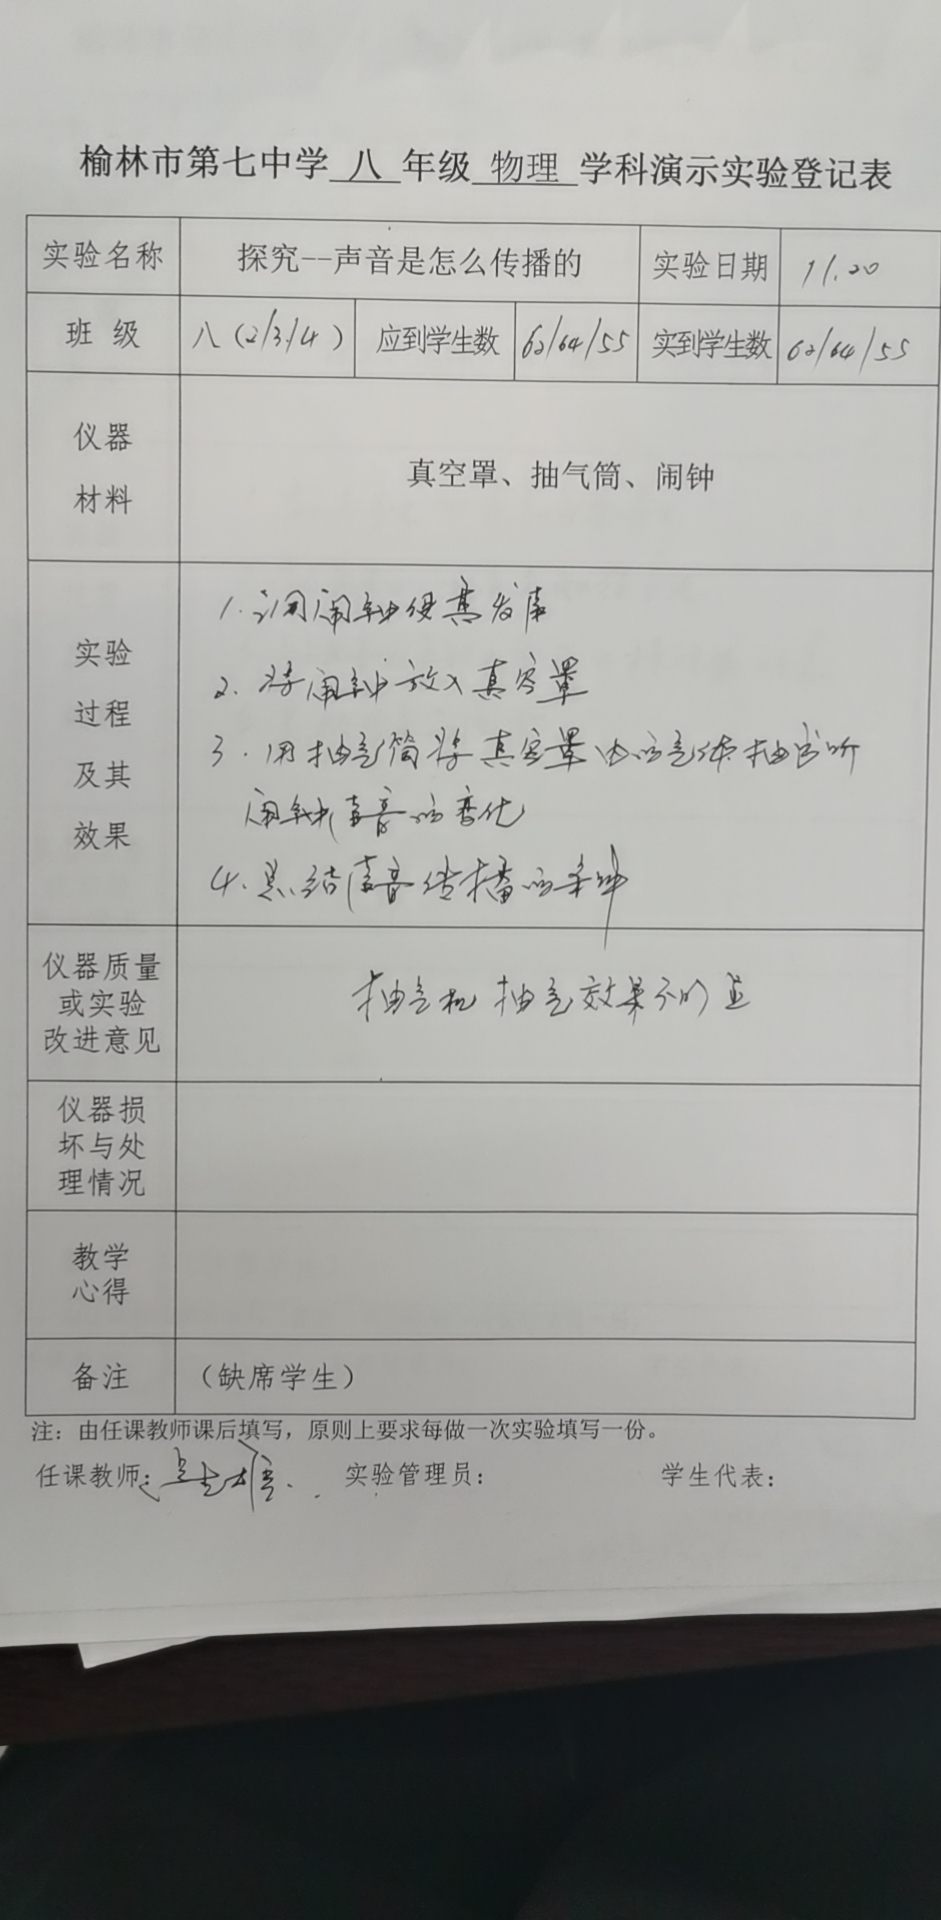 榆林市第七中学 八 年级 物理 学科演示实验登记表
实验名称 探究--声音是怎么传播的 实验日期 11.20
班 级 八(2/3/4) 应到学生数 62/64/55 实到学生数 62/64/55
仪器
材料
真空罩、抽气筒、闹钟
实验
过程
及其
效果
1.调闹钟使其发声
2.将闹钟放入真空罩
3.用抽气筒将真空罩内的气体抽出听
闹钟声音的变化
4.总结声音传播的条件
仪器质量
或实验
改进意见
抽气机抽气效果不明显
仪器损
坏与处
理情况
教学
心得
备注 (缺席学生)
注:由任课教师课后填写,原则上要求每做一次实验填写一份。
任课教师: 实验管理员: 学生代表: